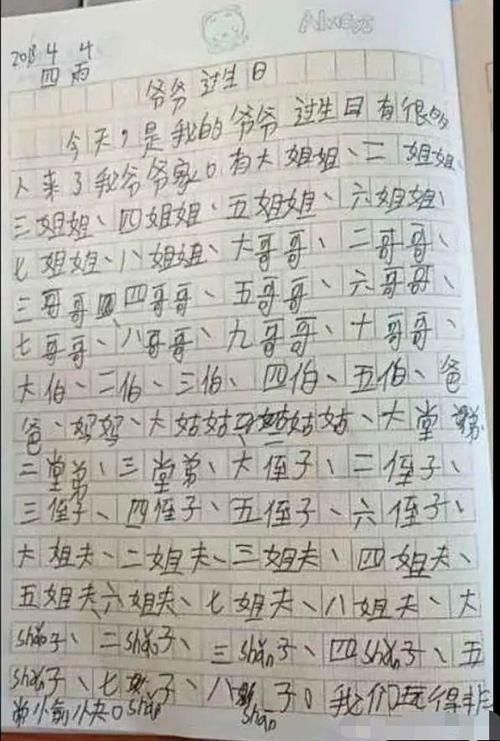 Always
2018 4 4
四 雨
爷爷过生日
今天,是我的爷爷过生日有很多
人来了我爷爷家。有大姐姐、二姐姐、
三姐姐、四姐姐、五姐姐、六姐姐、
七姐姐、八姐姐、大哥哥、二哥哥、
三哥哥、四哥哥、五哥哥、六哥哥、
七哥哥、八哥哥、九哥哥、十哥哥、
大伯、二伯、三伯、四伯、五伯、爸
爸、妈妈、大姑姑、二姑姑、大堂弟、
二堂弟、三堂弟、大侄子、二侄子、
三侄子、四侄子、五侄子、六侄子、
大姐夫、二姐夫、三姐夫、四姐夫、
五姐夫、六姐夫、七姐夫、八姐夫、大
shǎo子、二shǎo子、三shǎn子、四shǎn子、五
shǎn子、七shǎn子、八shǎn子。我们玩得非
常